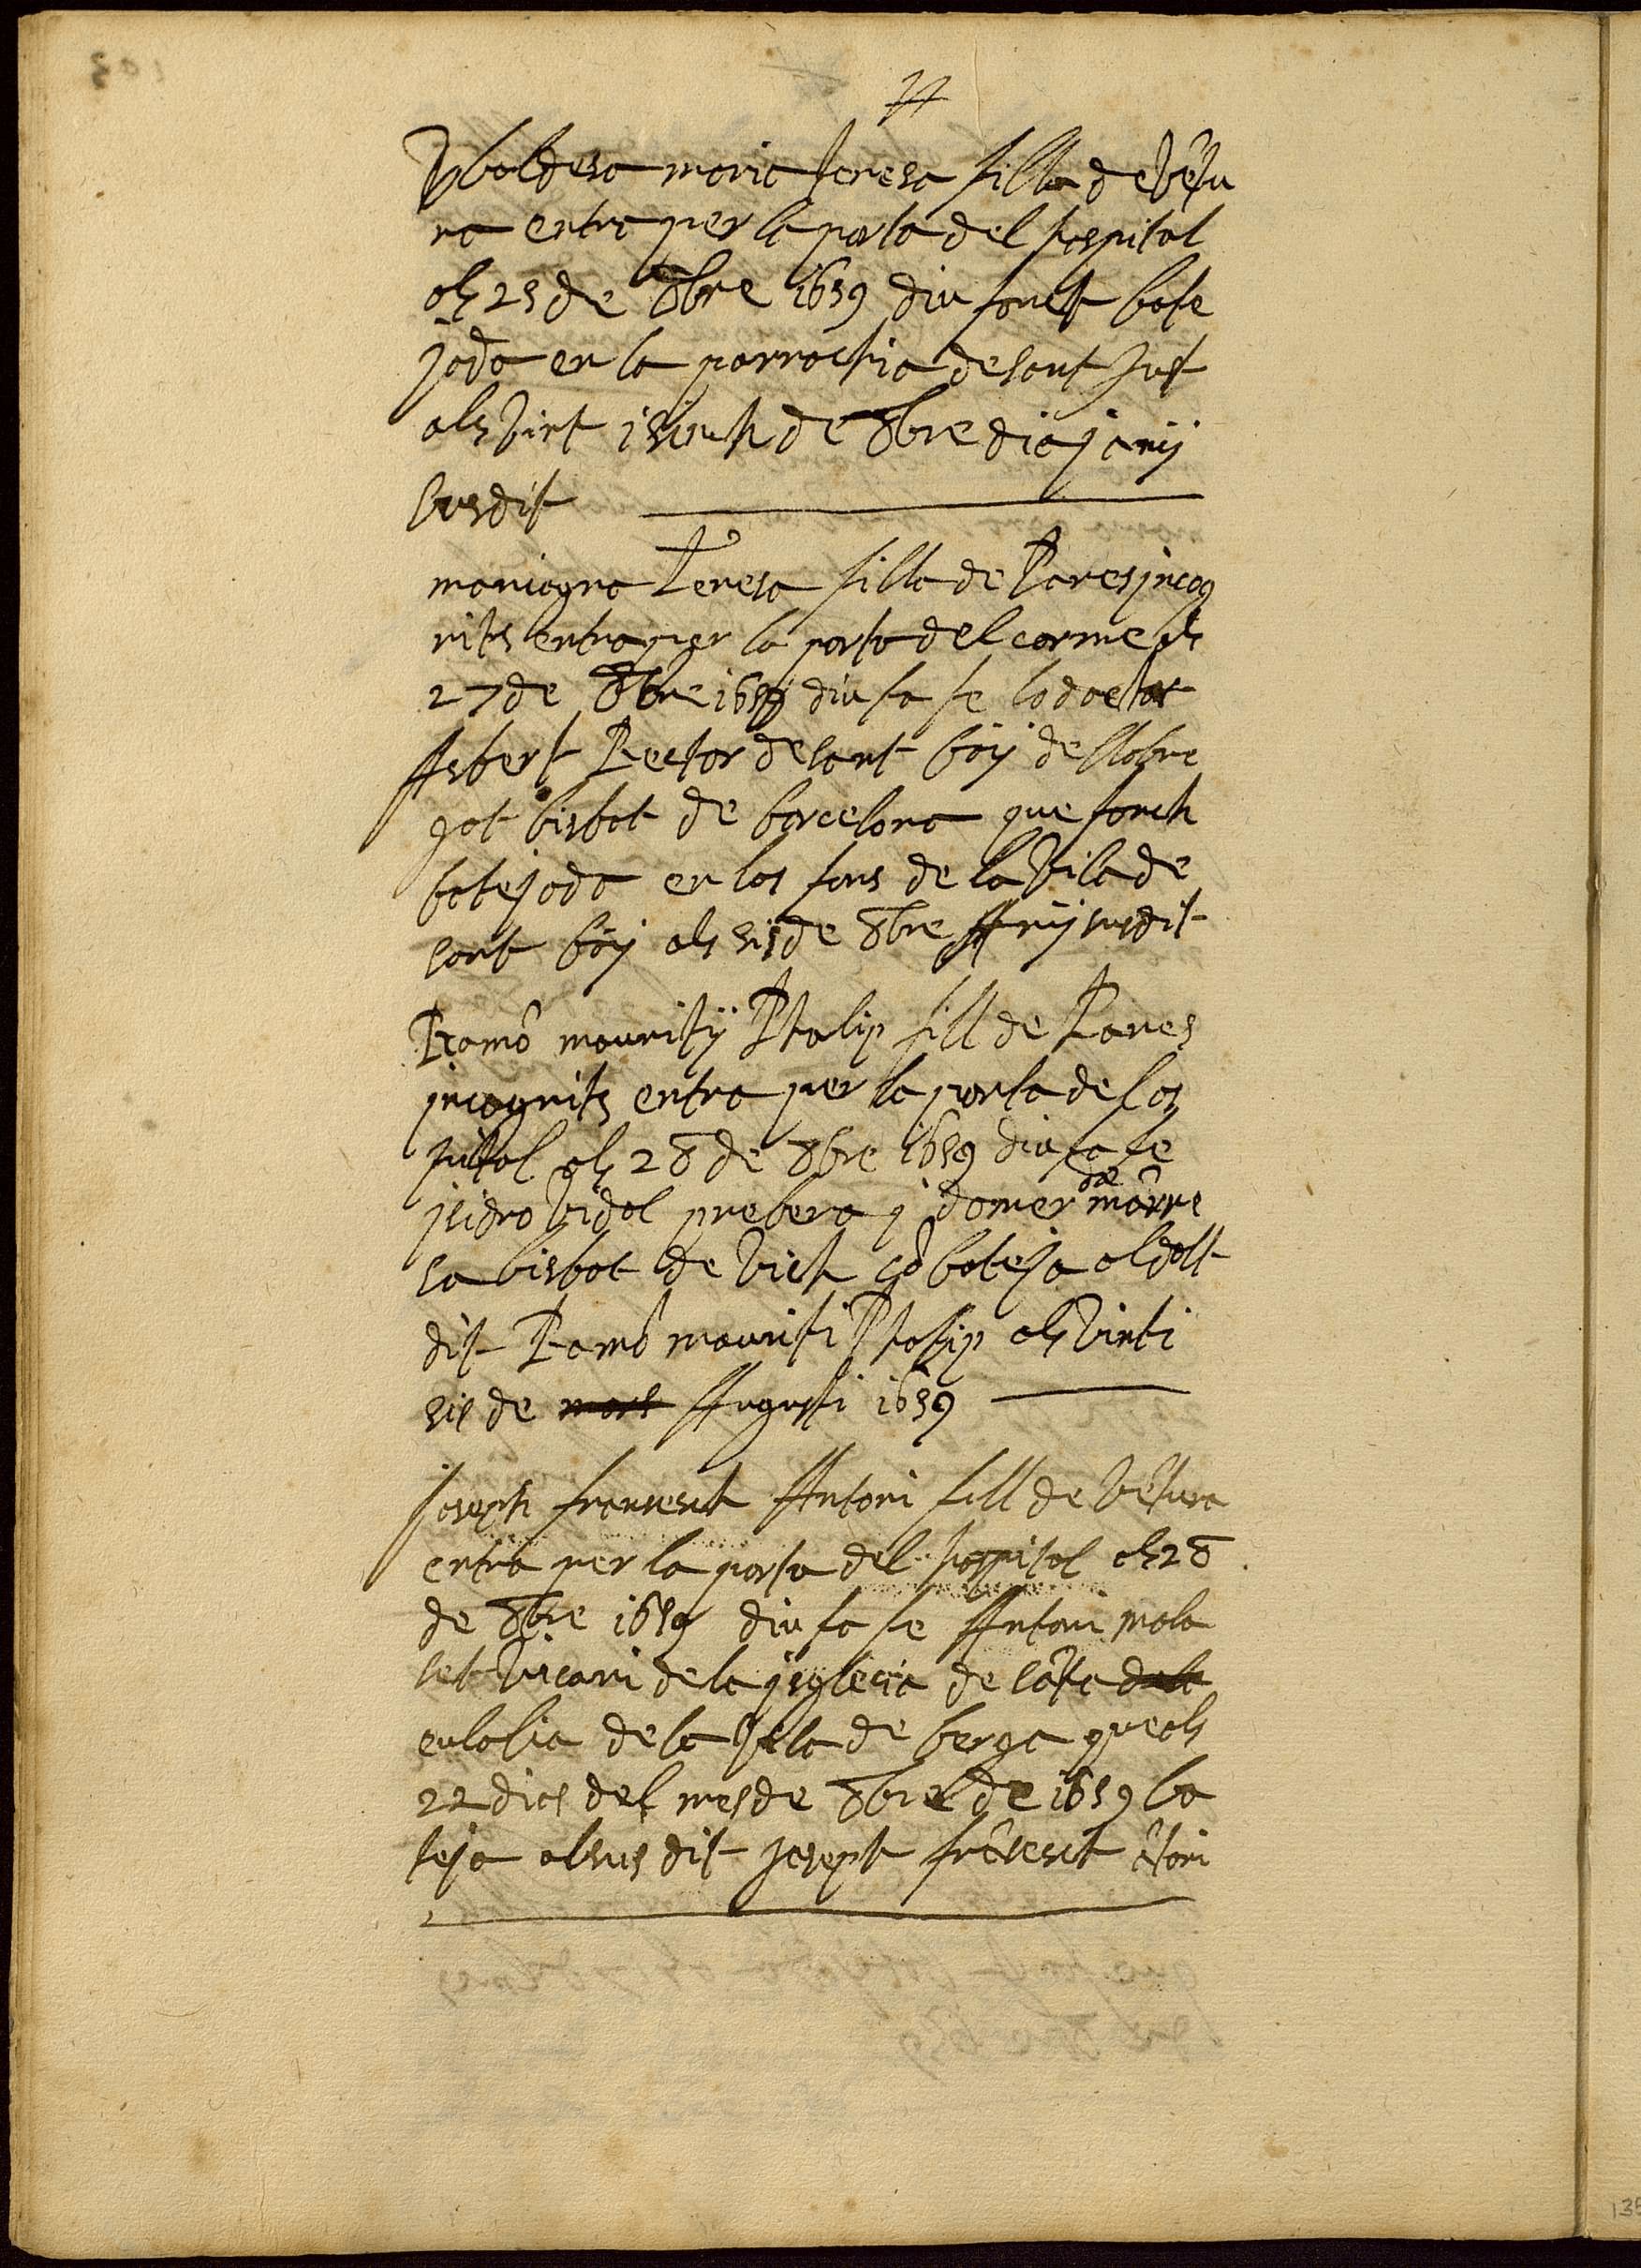 Ubaldesa maria teresa filla de vētu
ra entra per la porta del hospital
als 25 de 8bre 1659 diu fonch bate
jada en la parrochia de sant Just
als vint i sinch de 8bre dia j anij
susdit
mariagna Teresa filla de Pares incog
nits entra per la porta del carme als
27 de 8bre 1659 diu fa fe lo doctor
Asbert Rector de sant böÿ de llobre
gat bisbat de barcelona que fonch
batejada en las fons de la Vila de
sant böÿ als sis de 8bre Anij susdit
Ramō mauritÿ Ptalip fill de Pares
incognits entra per la porta del os
pital als 28 de 8bre 1659 diu fa fe
isidro Vidal prebera j domer de mārre
sa bisbat de Vich  bateja al dalt
dit Ramō mauriti Ptalip als Vinti
sis de mars Augusti 1659
Joseph fransesch Antoni fill de vētura
entra per la porta del hospital als 28
de 8bre 1659 diu fa fe Antoni mala
set Vicari de la jsglesia de sāta dala
eulalia de la Vila de berga que als
22 dias del mes de 8bre de 1659 ba
teja al sus dit Joseph frāsesch ātoni
103
135